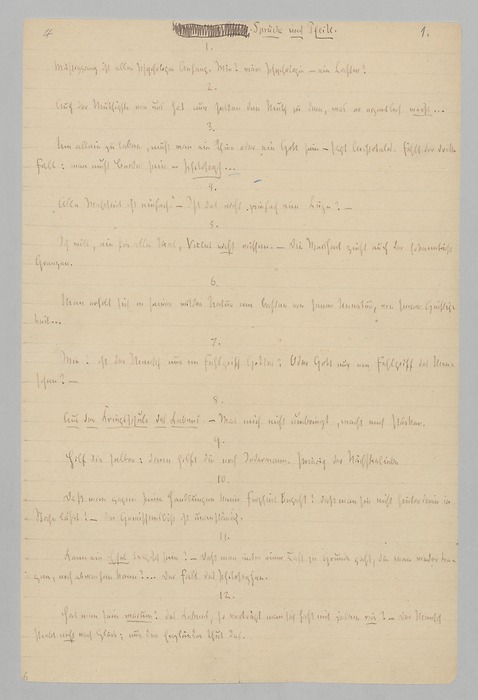 4 Sprüche und Pfeile. 1.
1.
Müssiggang ist aller Psychologie Anfang. Wie? wäre Psychologie – ein Laster?
2.
Auch der Muthigste von uns hat nur selten den Muth zu dem, was er eigentlich weiß...
3.
Um allein zu leben, muß man ein Thier oder ein Gott sein – sagt Aristoteles. Fehlt der dritte
Fall: man muß Beides sein – Philosoph...
4.
„Alle Wahrheit ist einfach." – Ist das nicht zwiefach eine Lüge? –
5.
Ich will, ein für alle Mal, Vieles nicht wissen. – Die Weisheit zieht auch der Erkenntniß
Grenzen.
6.
Man erholt sich in seiner wilden Natur am besten von seiner Unnatur, von seiner Geistig-
keit...
7.
Wie? ist der Mensch nur ein Fehlgriff Gottes? Oder Gott nur ein Fehlgriff des Men-
schen? –
8.
Aus der Kriegsschule des Lebens. – Was mich nicht umbringt, macht mich stärker.
9.
Hilf dir selber: dann hilft dir noch Jedermann. Princip der Nächstenliebe.
10.
Daß man gegen seine Handlungen keine Feigheit begeht! daß man sie nicht hinterdrein im
Stiche läßt! – Der Gewissensbiß ist unanständig.
11.
Kann ein Esel tragisch sein? – Daß man unter einer Last zu Grunde geht, die man weder tra-
gen, noch abwerfen kann?... Der Fall des Philosophen.
12.
Hat man sein warum? des Lebens, so verträgt man sich fast mit jedem wie? – Der Mensch
strebt nicht nach Glück; nur der Engländer thut das.